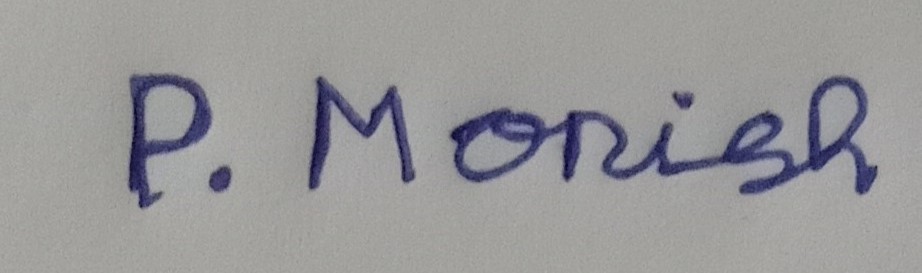 P. Monish